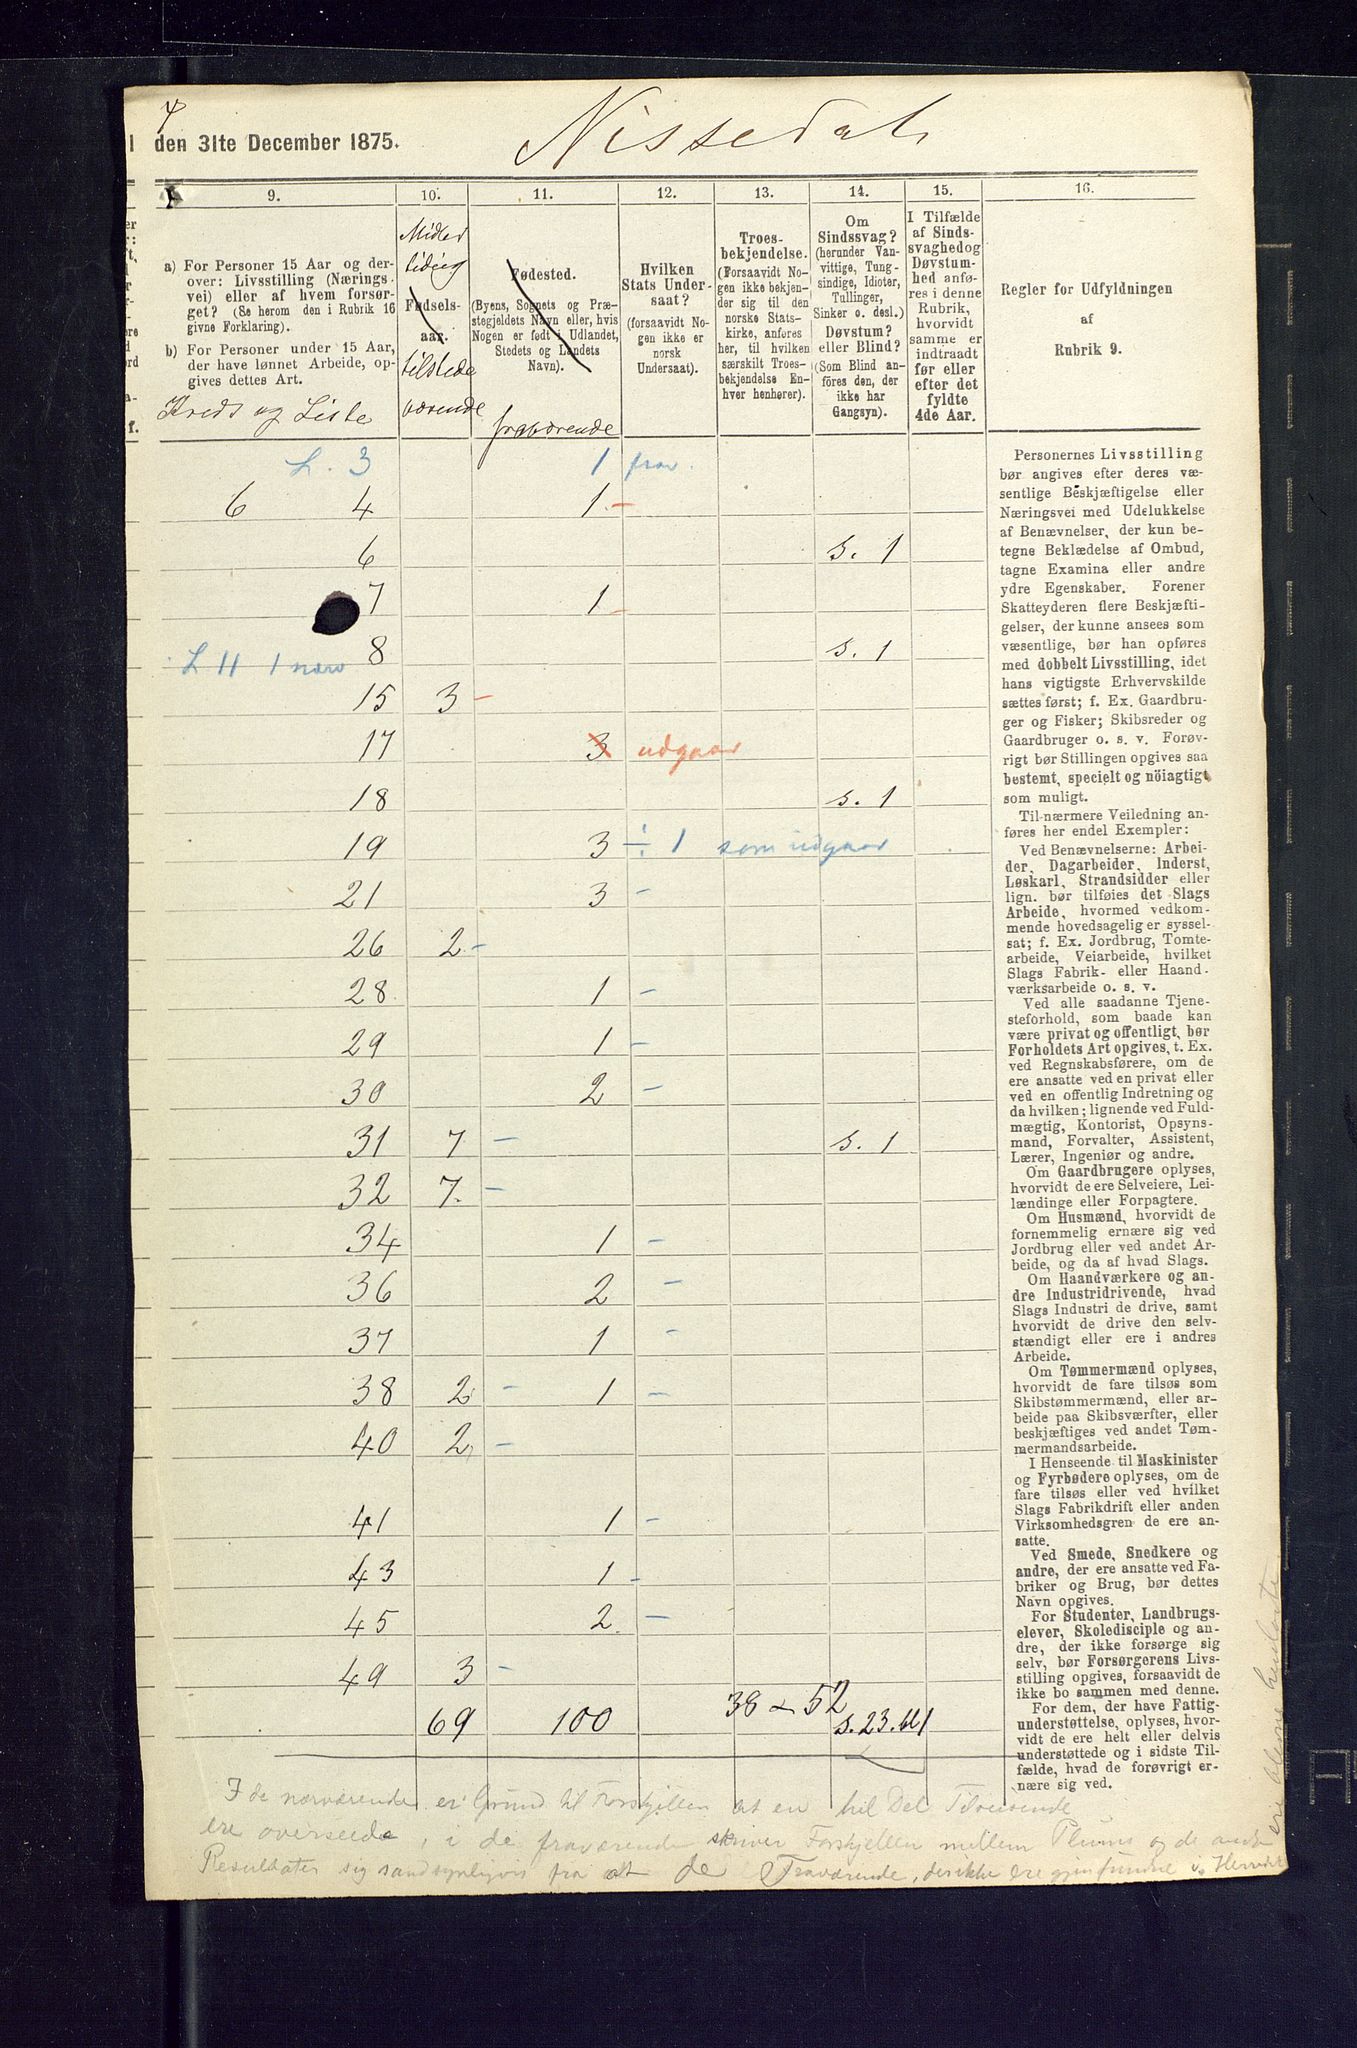 4
den 31te December 1875.
Nissedal
9.
10.
11.
12.
13.
14.
15.
16.
a) For Personer 15 Aar og der-
over: Livsstilling (Nærings-
vei) eller af hvem forsør-
get? (Se herom den i Rubrik 16
givne Forklaring).
b) For Personer under 15 Aar,
der have lønnet Arbeide, op-
gives dettes Art.
Kreds og Liste
Midler
tidig
Fødsels-
aar.
tilstede
værende
Fødested.
(Byens, Sognets og Præ-
stegjeldets Navn eller, hvis
Nogen er født i Udlandet,
Stedets og Landets
Navn).
fraværende
Hvilken
Stats Under-
saat?
(forsaavidt No-
gen ikke er
norsk
Undersaat).
Troes-
bekjendelse.
(Forsaavidt No-
gen ikke bekjen-
der sig til den
norske Stats-
kirke, anføres
her, til hvilken
særskilt Troes-
bekjendelse En-
hver henhører).
Om
Sindssvag?
(herunder Van-
vittige, Tung-
sindige, Idioter,
Tullinger,
Sinker o. desl.)
Døvstum?
eller Blind?
(Som Blind an-
føres den, der
ikke har
Gangsyn).
I Tilfælde
af Sinds-
svaghed og
Døvstum-
hed anfø-
res i denne
Rubrik,
hvorvidt
samme er
indtraadt
før eller
efter det
fyldte
4de Aar.
Regler for Udfyldningen
af
Rubrik 9.
L. 3 1 frav.
6 4 1 -
6 s. 1
7 1 -
L 11 1 nærv 8 s. 1
15 3 -
17 3 udgaar
18 s. 1
19 3 ÷ 1 som udgaar
21 3 -
26 2 -
28 1 -
29 1 -
30 2 -
31 7 - s. 1
32 7. -
34 1 -
36 2 -
37 1 -
38 2 - 1 -
40 2 -
41 1 -
43 1 -
45 2. -
49 3 -
69 100 38 - 52 s. 23. bl 1
Personernes Livsstilling
bør angives efter deres væ-
sentlige Beskjæftigelse eller
Næringsvei med Udelukkelse
af Benævnelser, der kun be-
tegne Beklædelse af Ombud,
tagne Examina eller andre
ydre Egenskaber. Forener
Skatteyderen flere Beskjæfti-
gelser, der kunne ansees som
væsentlige, bør han opføres
med dobbelt Livsstilling, idet
hans vigtigste Erhvervskilde
sættes først; f. Ex. Gaardbru-
ger og Fisker; Skibsreder og
Gaardbruger o. s. v. Forøv-
rigt bør Stillingen opgives saa
bestemt, specielt og nöiagtigt
som muligt.
Til nærmere Veiledning an-
føres her endel Exempler:
Ved Benævnelserne: Arbei-
der, Dagarbeider, Inderst,
Løskarl, Strandsidder eller
lign. bør tilføies det Slags
Arbeide, hvormed vedkom-
mende hovedsagelig er syssel-
sat; f. Ex. Jordbrug, Tomte-
arbeide, Veiarbeide, hvilket
Slags Fabrik- eller Haand-
værksarbeide o. s. v.
Ved alle saadanne Tjene-
steforhold, som baade kan
være privat og offentligt, bør
Forholdets Art opgives, t. Ex.
ved Regnskabsførere, om de
ere ansatte ved en privat eller
ved en offentlig Indretning og
da hvilken; lignende ved Fuld-
mægtig, Kontorist, Opsyns-
mand, Forvalter, Assistent,
Lærer, Ingeniør og andre.
Om Gaardbrugere oplyses,
hvorvidt de ere Selveiere, Lei-
lændinge eller Forpagtere.
Om Husmænd, hvorvidt de
fornemmelig ernære sig ved
Jordbrug eller ved andet Ar-
beide, og da af hvad Slags.
Om Haandværkere og an-
dre Industridrivende, hvad
Slags Industri de drive, samt
hvorvidt de drive den selv-
stændigt eller ere i andres
Arbeide.
Om Tømmermænd oplyses,
hvorvidt de fare tilsøs som
Skibstømmermænd, eller ar-
beide paa Skibsværfter, eller
beskjæftiges ved andet Tøm-
mermandsarbeide.
I Henseende til Maskinister
og Fyrbødere oplyses, om de
fare tilsøs eller ved hvilket
Slags Fabrikdrift eller anden
Virksomhedsgren de ere an-
satte.
Ved Smede, Snedkere og
andre, der ere ansatte ved Fa-
briker og Brug, bør dettes
Navn opgives.
For Studenter, Landbrugs-
elever, Skoledisciple og an-
dre, der ikke forsørge sig
selv, bør Forsørgerens Livs-
stilling opgives, forsaavidt de
ikke bo sammen med denne.
For dem, der have Fattig-
understøttelse, oplyses, hvor-
vidt de ere helt eller delvis
understøttede og i sidste Til-
fælde, hvad de forøvrigt er-
nære sig ved.
I de nærværende er Grund til Forskjellen at en hel Del Tilreisende
ere overseede, i de fraværende skriver Forskjellen mellem Plums og de andre
Resultater sig sandsynligvis fra at de Fraværende, der ikke ere gjenfundne i
ere blevne